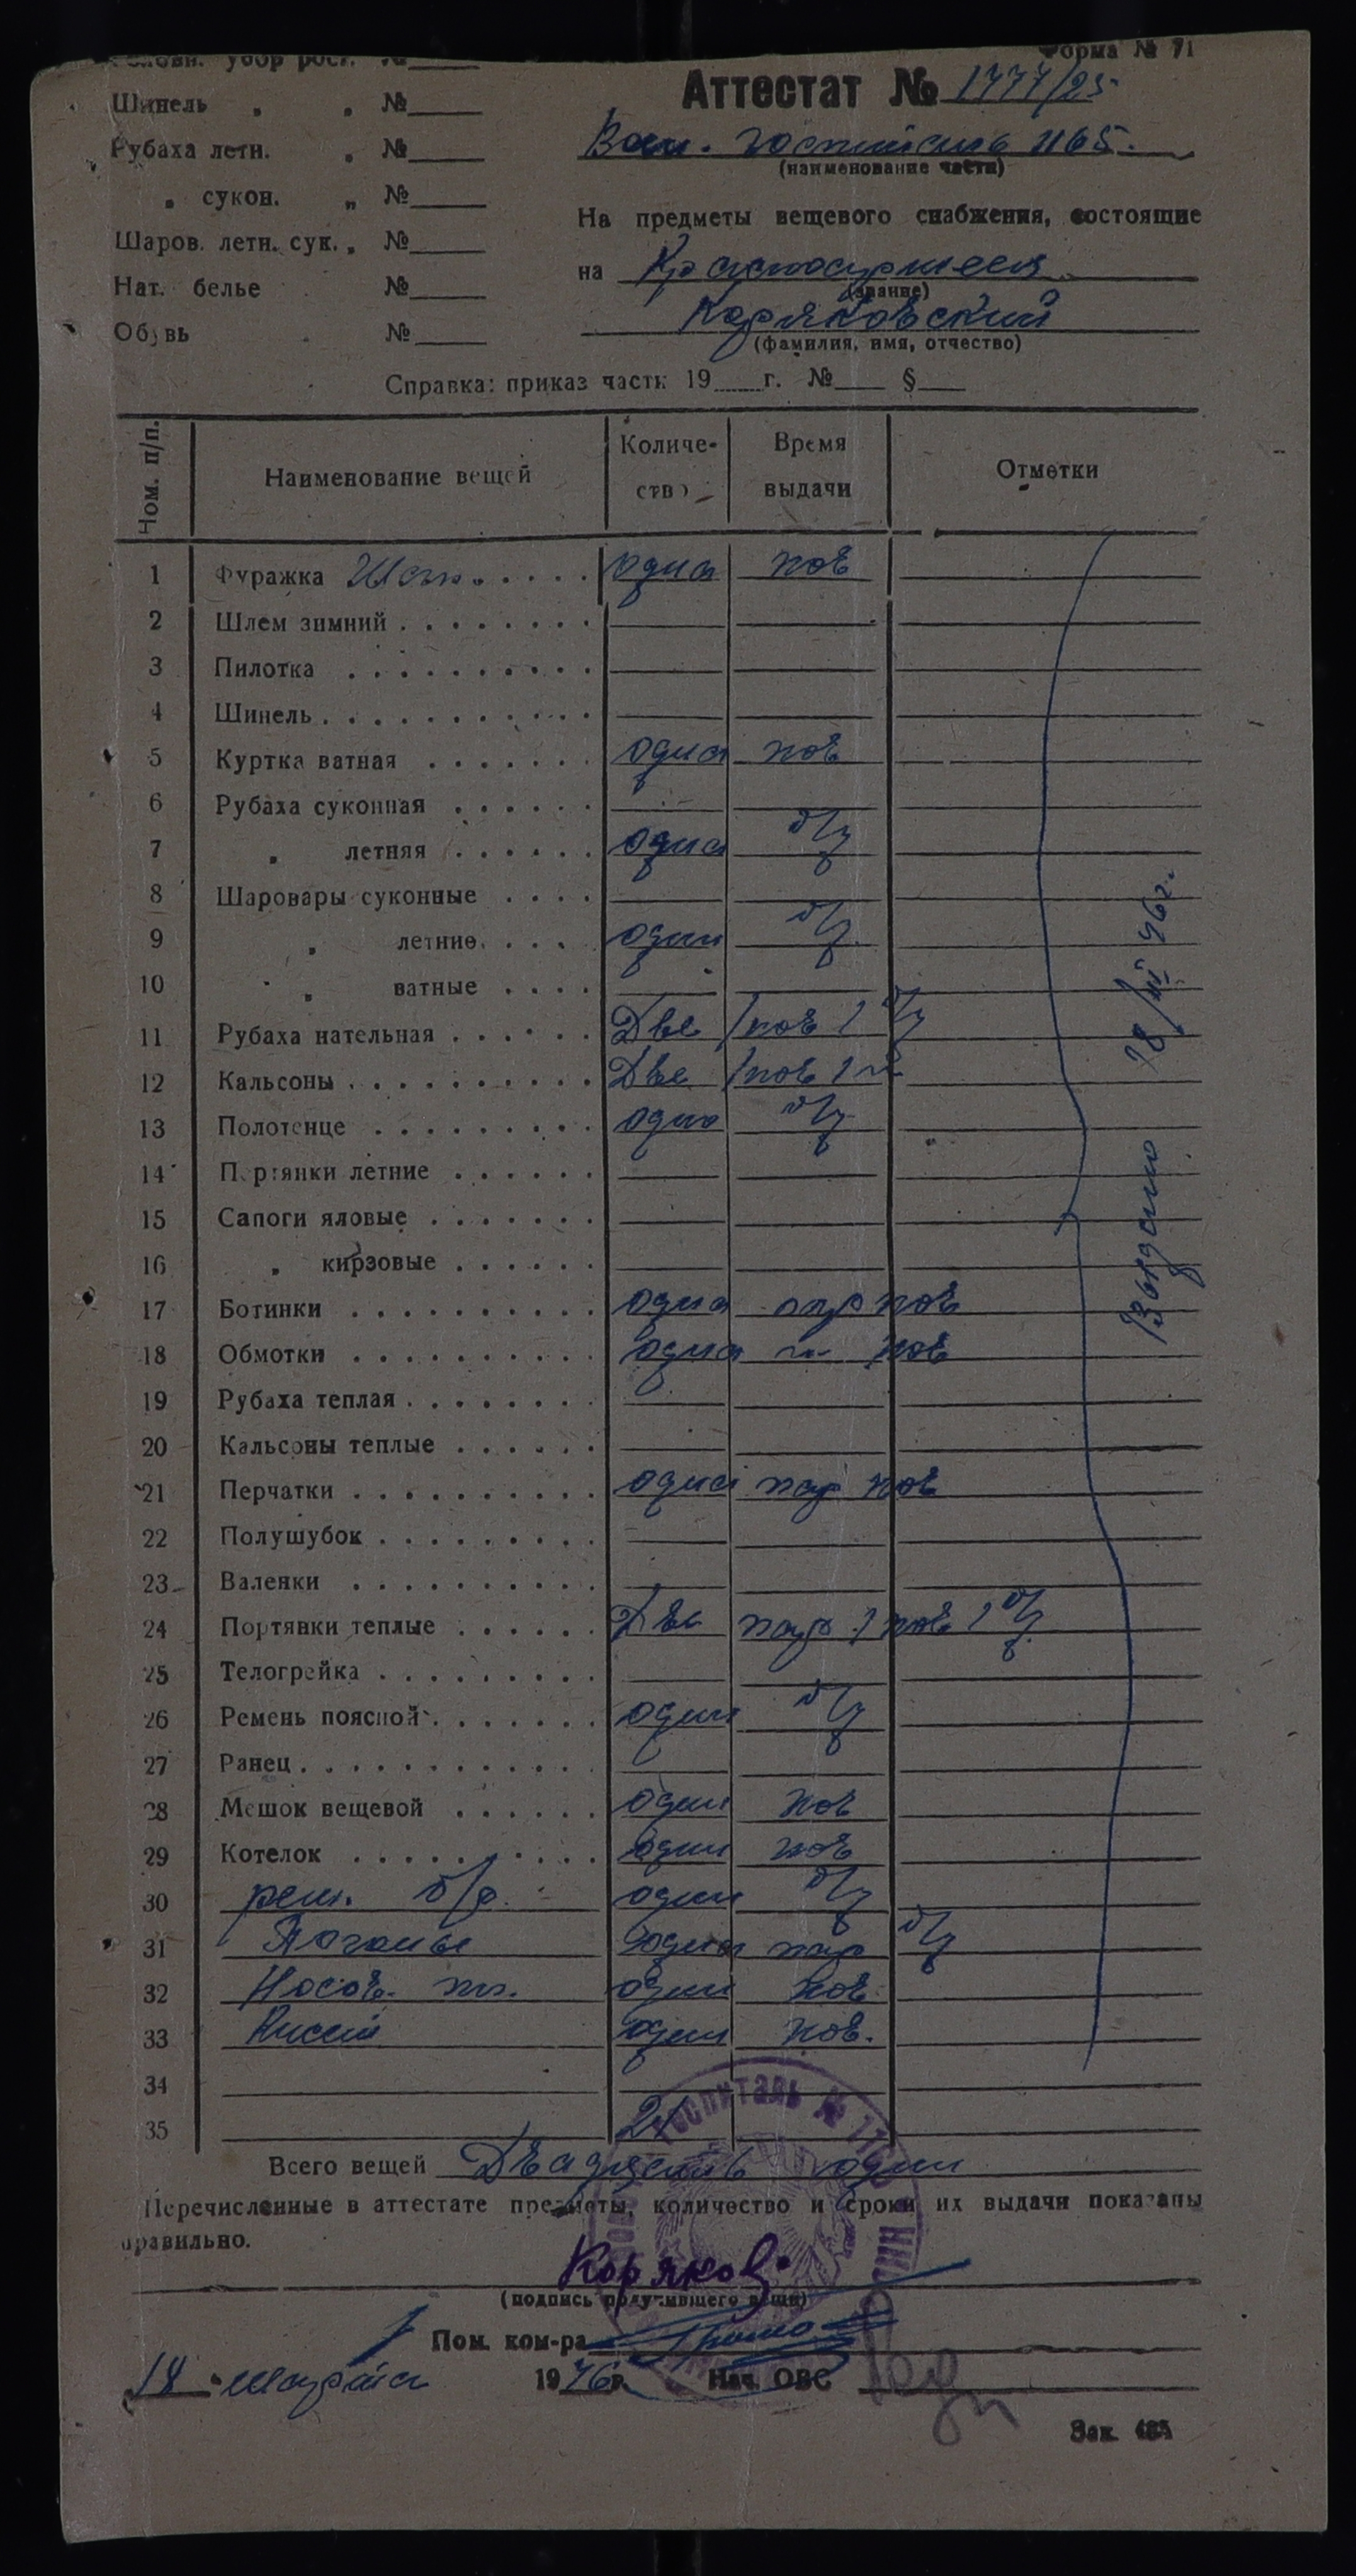 Головн. убор рост. №
Форма № 71
Шинель " " №
Аттестат № 1777/25
Рубаха летн. " №
Воен. госпиталь 1165.
(наименование части)
" сукон. " №
На предметы вещевого снабжения, состоящие
Шаров. летн. сук. " №
на Красноармеец
(звание)
Нат. белье №
Коряковский
Обувь №
(фамилия, имя, отчество)
Справка: приказ части 19 г. № §
Ном. п/п. Наименование вещей Количе-ство Время выдачи Отметки
1 Фуражка одна нов
2 Шлем зимний
3 Пилотка
4 Шинель
5 Куртка ватная одна нов
6 Рубаха суконная
7 " летняя одна б/у
8 Шаровары суконные
9 " летние один б/у
10 " ватные
11 Рубаха нательная Две 1 нов 1 б/у
12 Кальсоны Две 1 нов 1 "
13 Полотенце одно б/у
14 Портянки летние
15 Сапоги яловые
16 " кирзовые
17 Ботинки одна пар нов
18 Обмотки одна " нов
19 Рубаха теплая
20 Кальсоны теплые
21 Перчатки одна пар нов
22 Полушубок
23 Валенки
24 Портянки теплые Две пар 1 нов 1 б/у
25 Телогрейка
26 Ремень поясной один б/у
27 Ранец
28 Мешок вещевой один нов
29 Котелок один нов
30 рем. б/р. один б/у
31 Погоны одна пар б/у
32 Носов. пл. один нов
33 Кисет один нов.
34
35 21
Выдано 18/III 46г.
Всего вещей Двадцать один
Перечисленные в аттестате предметы, количество и сроки их выдачи показаны
правильно.
Коряков
(подпись получившего вещи)
Пом. ком-ра
18 " марта 1946 г. Нач. ОВС
Зак. 485
Госпиталь № 1165